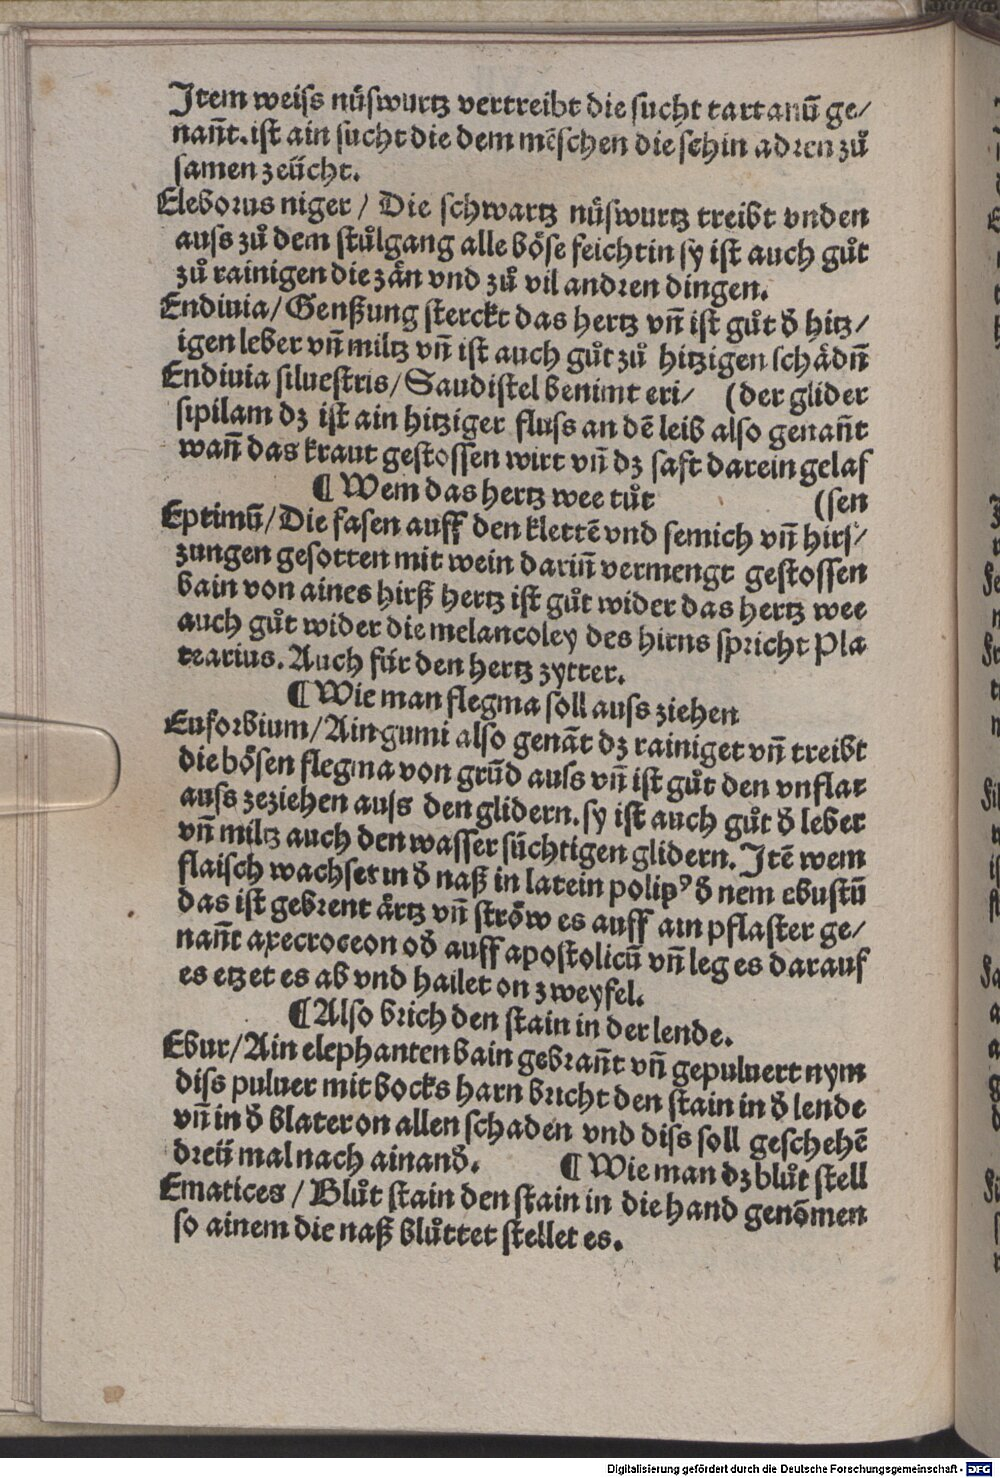 Item weiſs nuͤſwurtz vertreibt die ſucht tartanū ge/
nañt. iſt ain ſucht die dem mēſchen die ſehin adren zuͦ
ſamen zeücht.
Eleborus niger / Die ſchwartz nuͤſwurtz treibt vnden
auſs zuͦ dem ſtuͦlgang alle boͤſe feichtin ſy iſt auch guͦt
zuͦ rainigen die zaͤn vnd zuͦ vil andren dingen.
Endiuia / Genßung ſterckt das hertz vñ iſt guͦt d̄ hitz/
igen leber vñ miltz vñ iſt auch guͦt zuͦ hitzigen ſchaͤdñ
Endiuia ſilueſtris / Saudiſtel benimt eri/ (der glider
ſipilam dz iſt ain hitziger fluſs an dē leib alſo genañt
wañ das kraut geſtoſſen wirt vñ dz ſaft darein gelaſ
¶ Wem das hertz wee tuͦt (ſen
Eptimū / Die faſen auff den klettē vnd ſemich vñ hirſ/
zungen geſotten mit wein dariñ vermengt geſtoſſen
bain von aines hirß hertz iſt guͦt wider das hertz wee
auch guͦt wider die melancoley des hirns ſpricht Pla
tearius. Auch für den hertz zytter.
¶ Wie man flegma ſoll auſs ziehen
Euforbium / Ain gumi alſo genāt dz rainiget vñ treibt
die boͤſen flegma von grūd auſs vñ iſt guͦt den vnflat
auſs zeziehen auſs den glidern. ſy iſt auch guͦt d̄ leber
vñ miltz auch den waſſer ſüchtigen glidern. Itē wem
flaiſch wachſet in d̄ naß in latein polipꝰ d̄ nem ebuſtū
das iſt gebrent aͤrtz vñ ſtroͤw es auff ain pflaſter ge/
nañt axecroceon od̄ auff apoſtolicū vñ leg es darauf
es etzet es ab vnd hailet on zweyfel.
¶ Alſo brich den ſtain in der lende.
Ebur / Ain elephanten bain gebrañt vñ gepuluert nym
diſs puluer mit bocks harn bricht den ſtain in d̄ lende
vñ in d̄ blater on allen ſchaden vnd diſs ſoll geſchehē
dreü mal nach ainand̄. ¶ Wie man dz bluͦt ſtell
Ematices / Bluͦt ſtain den ſtain in die hand genōmen
ſo ainem die naß bluͦttet ſtellet es.
Digitalisierung gefördert durch die Deutsche Forschungsgemeinschaft - DFG